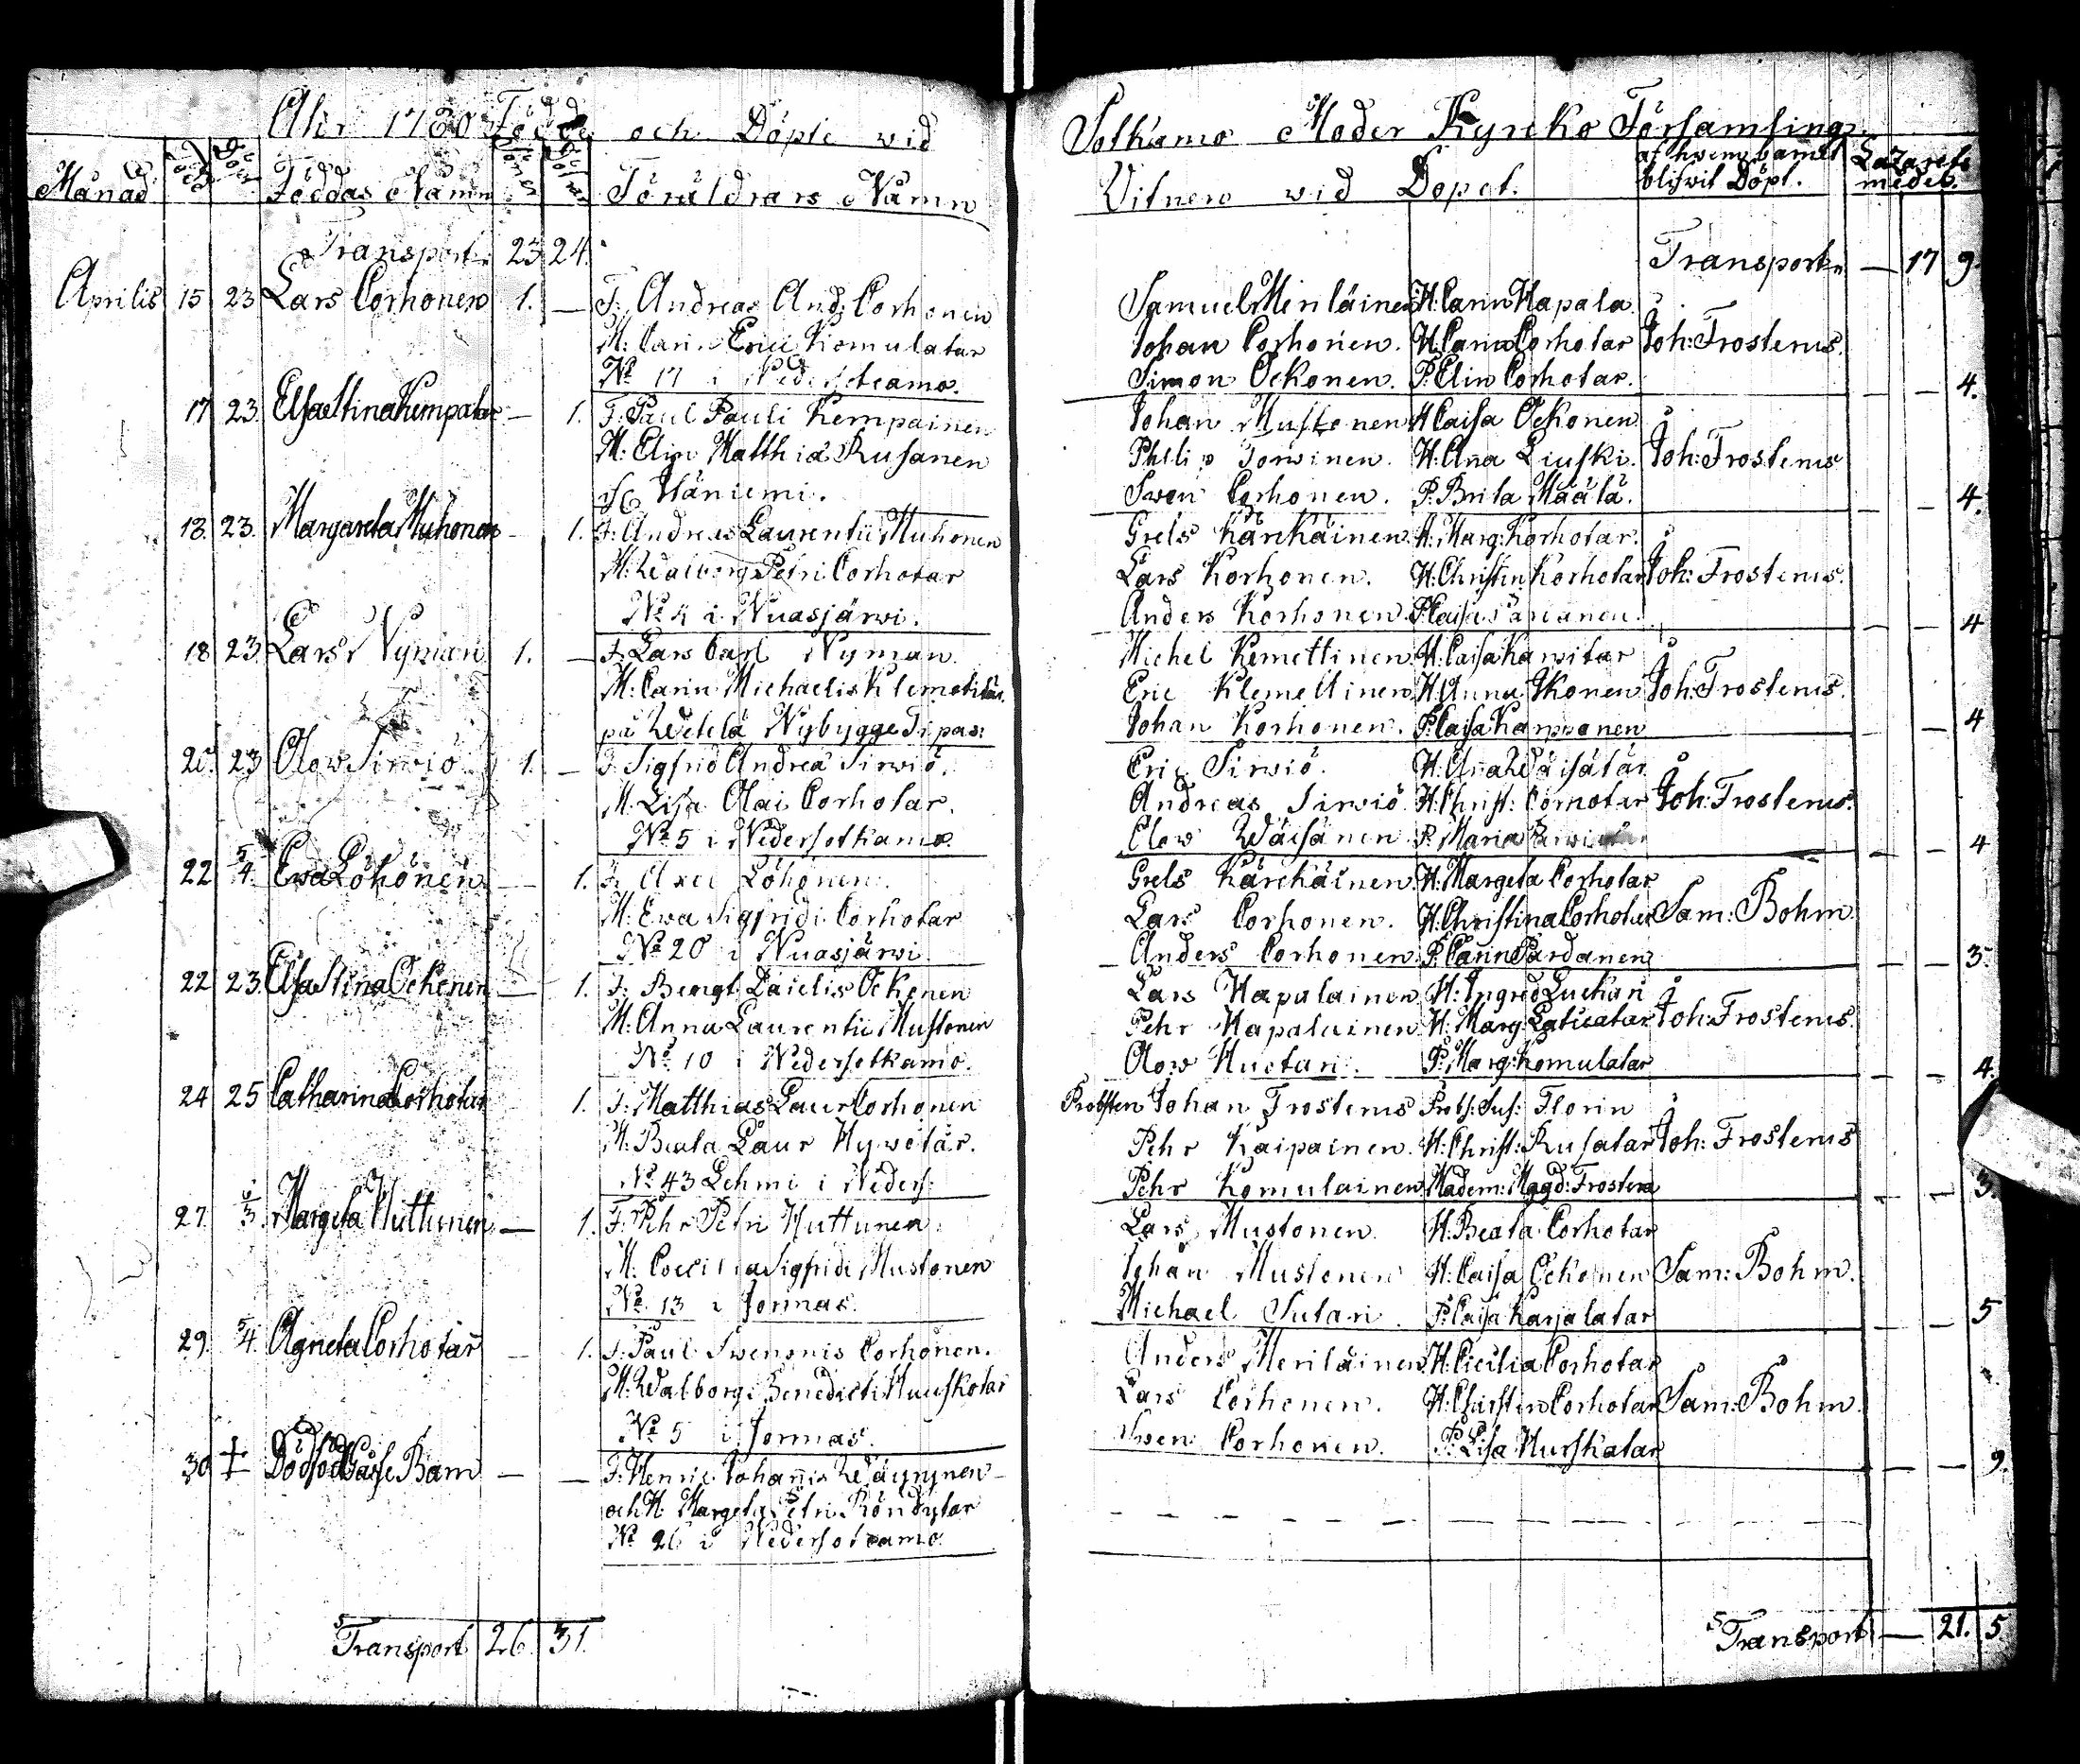 Åhr 1780 Födde och Döpte wid
Månad Född Döpt Föddas Namn Söner Döttrar Föräldrars Namn
Transport 23 24
Aprilis 15 23 Lars Corhonen 1. — F: Andreas And: Corhonen
M: Carin Erici Komulatar
No 17 i Nedersotcamo.
17 23. Elsa Stina Kempatar — 1. F: Paul Pauli Kempainen
M: Elin Matthiæ Rusanen
Häniemi.
18. 23. Margareta Muhonen — 1. F: Andreas Laurentii Muhonen
M: Walborg Petri Corhotar
No 4 i Nuasjärwi.
18 23. Lars Nyman 1. — F. Lars Carl Nyman
M: Carin Michaelis Klemetitär.
på Nybygge Tipas:
20. 23 Olow Sirwiö 1. — F. Sigfrid Andreæ Sirwiö.
M. Lisa Olai Corhotar.
No 5 i Nedersotkamo.
22 5/4. Ewa Löhönen — 1. F. Axel Löhönen.
M: Ewa Sigfridi Corhotar
No 20 i Nuasjärwi
22 23. Elsa Stina Ockonen — 1. F: Bengt Ockonen
M: Anna Laurentii Mustonen
No 10 i Nedersotkamo.
24 25 Catharina Corhotar 1. F: Matthias Laur Corhonen
M: Beata Laur Hywötär.
No 43 Lehmi i Neders:
27. 6/3. Margeta Huttunen — 1. F: Pehr Petri Huttunen.
M. Coecilia Sigfridi Mustonen
No 13 i Jormas.
29. 5/4. Agneta Corhotar — 1. F: Paul Swenonis Corhonen.
M: Walborg Benedicti Huuskotar
No 5 i Jormas.
30 † Dödfödt Gåsse Barn — — F: Henric Johannis Wäyrynen
och M. Margeta Petri Röndytar
No 26 i Nedersotcamo.
Transport 26. 31.
Sotkamo Moder Kyrcko Församling
Vitnen wid Dopet. af hwem barnet blifwit Döpt. Lazaretts medeb.
Transport — 17 9.
Samuel Meriläinen H: Carin Hapala.
Johan Corhonen. H. Carin Corhotar Joh: Frosterus.
Simon Ockonen. P: Elin Corhotar. — — 4.
Johan Mustonen H Caisa Ockonen
Philip Torwinen. H: Ana Liuski. Joh: Frosterus
Swen Corhonen. P: Brita Määtä. — — 4.
Grels Kärckäinen H: Marg: Korhotar.
Lars Korhonen. H: Christin Korhotar Joh: Frosterus.
Anders Korhonen P: Caisa — — 4
Michel Kemettinen H: Caisa Karwitar
Eric Klemettinen H Anna Ikonen Joh: Frosterus.
Johan Korhonen. P: Caisa — — 4
Eric Sirwiö. H: Ana Wäisätär
Andreas Sirwiö. H: Christ: Cornotar Joh: Frosterus.
Olow Wäisänen P. Maria — — 4
Grels Kärckäinen H: Margeta Corhotar
Lars Corhonen. H: Christina Corhotar Sam: Bohm
Anders Corhonen. P: Carin Pardanen — — 3.
Lars Hapalainen H: Ingred Luckari
Pehr Hapalainen H: Marg: Joh: Frosterus.
Olow Huotari. P: Marg: Komulatar — — 4.
Probsten Johan Frosterus Probs: Sus: Florin
Pehr Kaipainen. H: Christ: Rusatar Joh: Frosterus
Pehr Komulainen Madem: Magd: Frostera — — 3.
Lars Mustonen. H: Beata Corhotar
Johan Mustonen H: Caisa Ockonen Sam: Bohm.
Michael Sutari. P: Caisa Karjalatar — — 5
Anders Meriläinen H: Cicilia Corhotar
Lars Corhonen. H: Christin Corhotar Sam: Bohm.
Swen Corhonen. P: Lisa Hurskatar — — 9.
Transport — 21. 5.